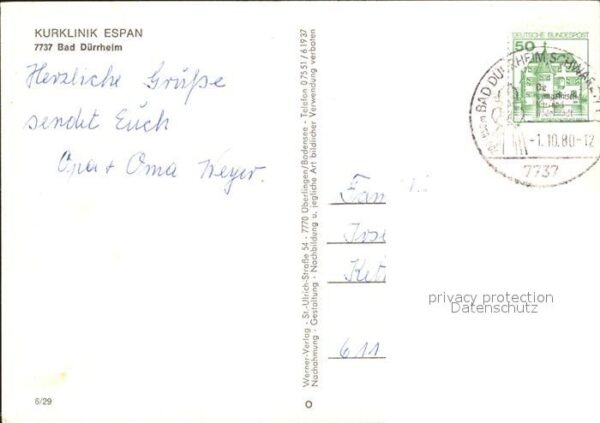 KURKLINIK ESPAN
7737 Bad Dürrheim
Herzliche Grüße
sendet Euch
Opa + Oma Weyer.
6/29
Werner-Verlag - St.-Ulrich-Straße 54 - 7770 Überlingen/Bodensee - Telefon 07551/61937
Nachahmung - Gestaltung - Nachbildung u. jegliche Art bildlicher Verwendung verboten
DEUTSCHE BUNDESPOST
50
BAD DÜRRHEIM, SCHWARZW
-1.10.80-12
7737
Fam
Jose
611
privacy protection
Datenschutz